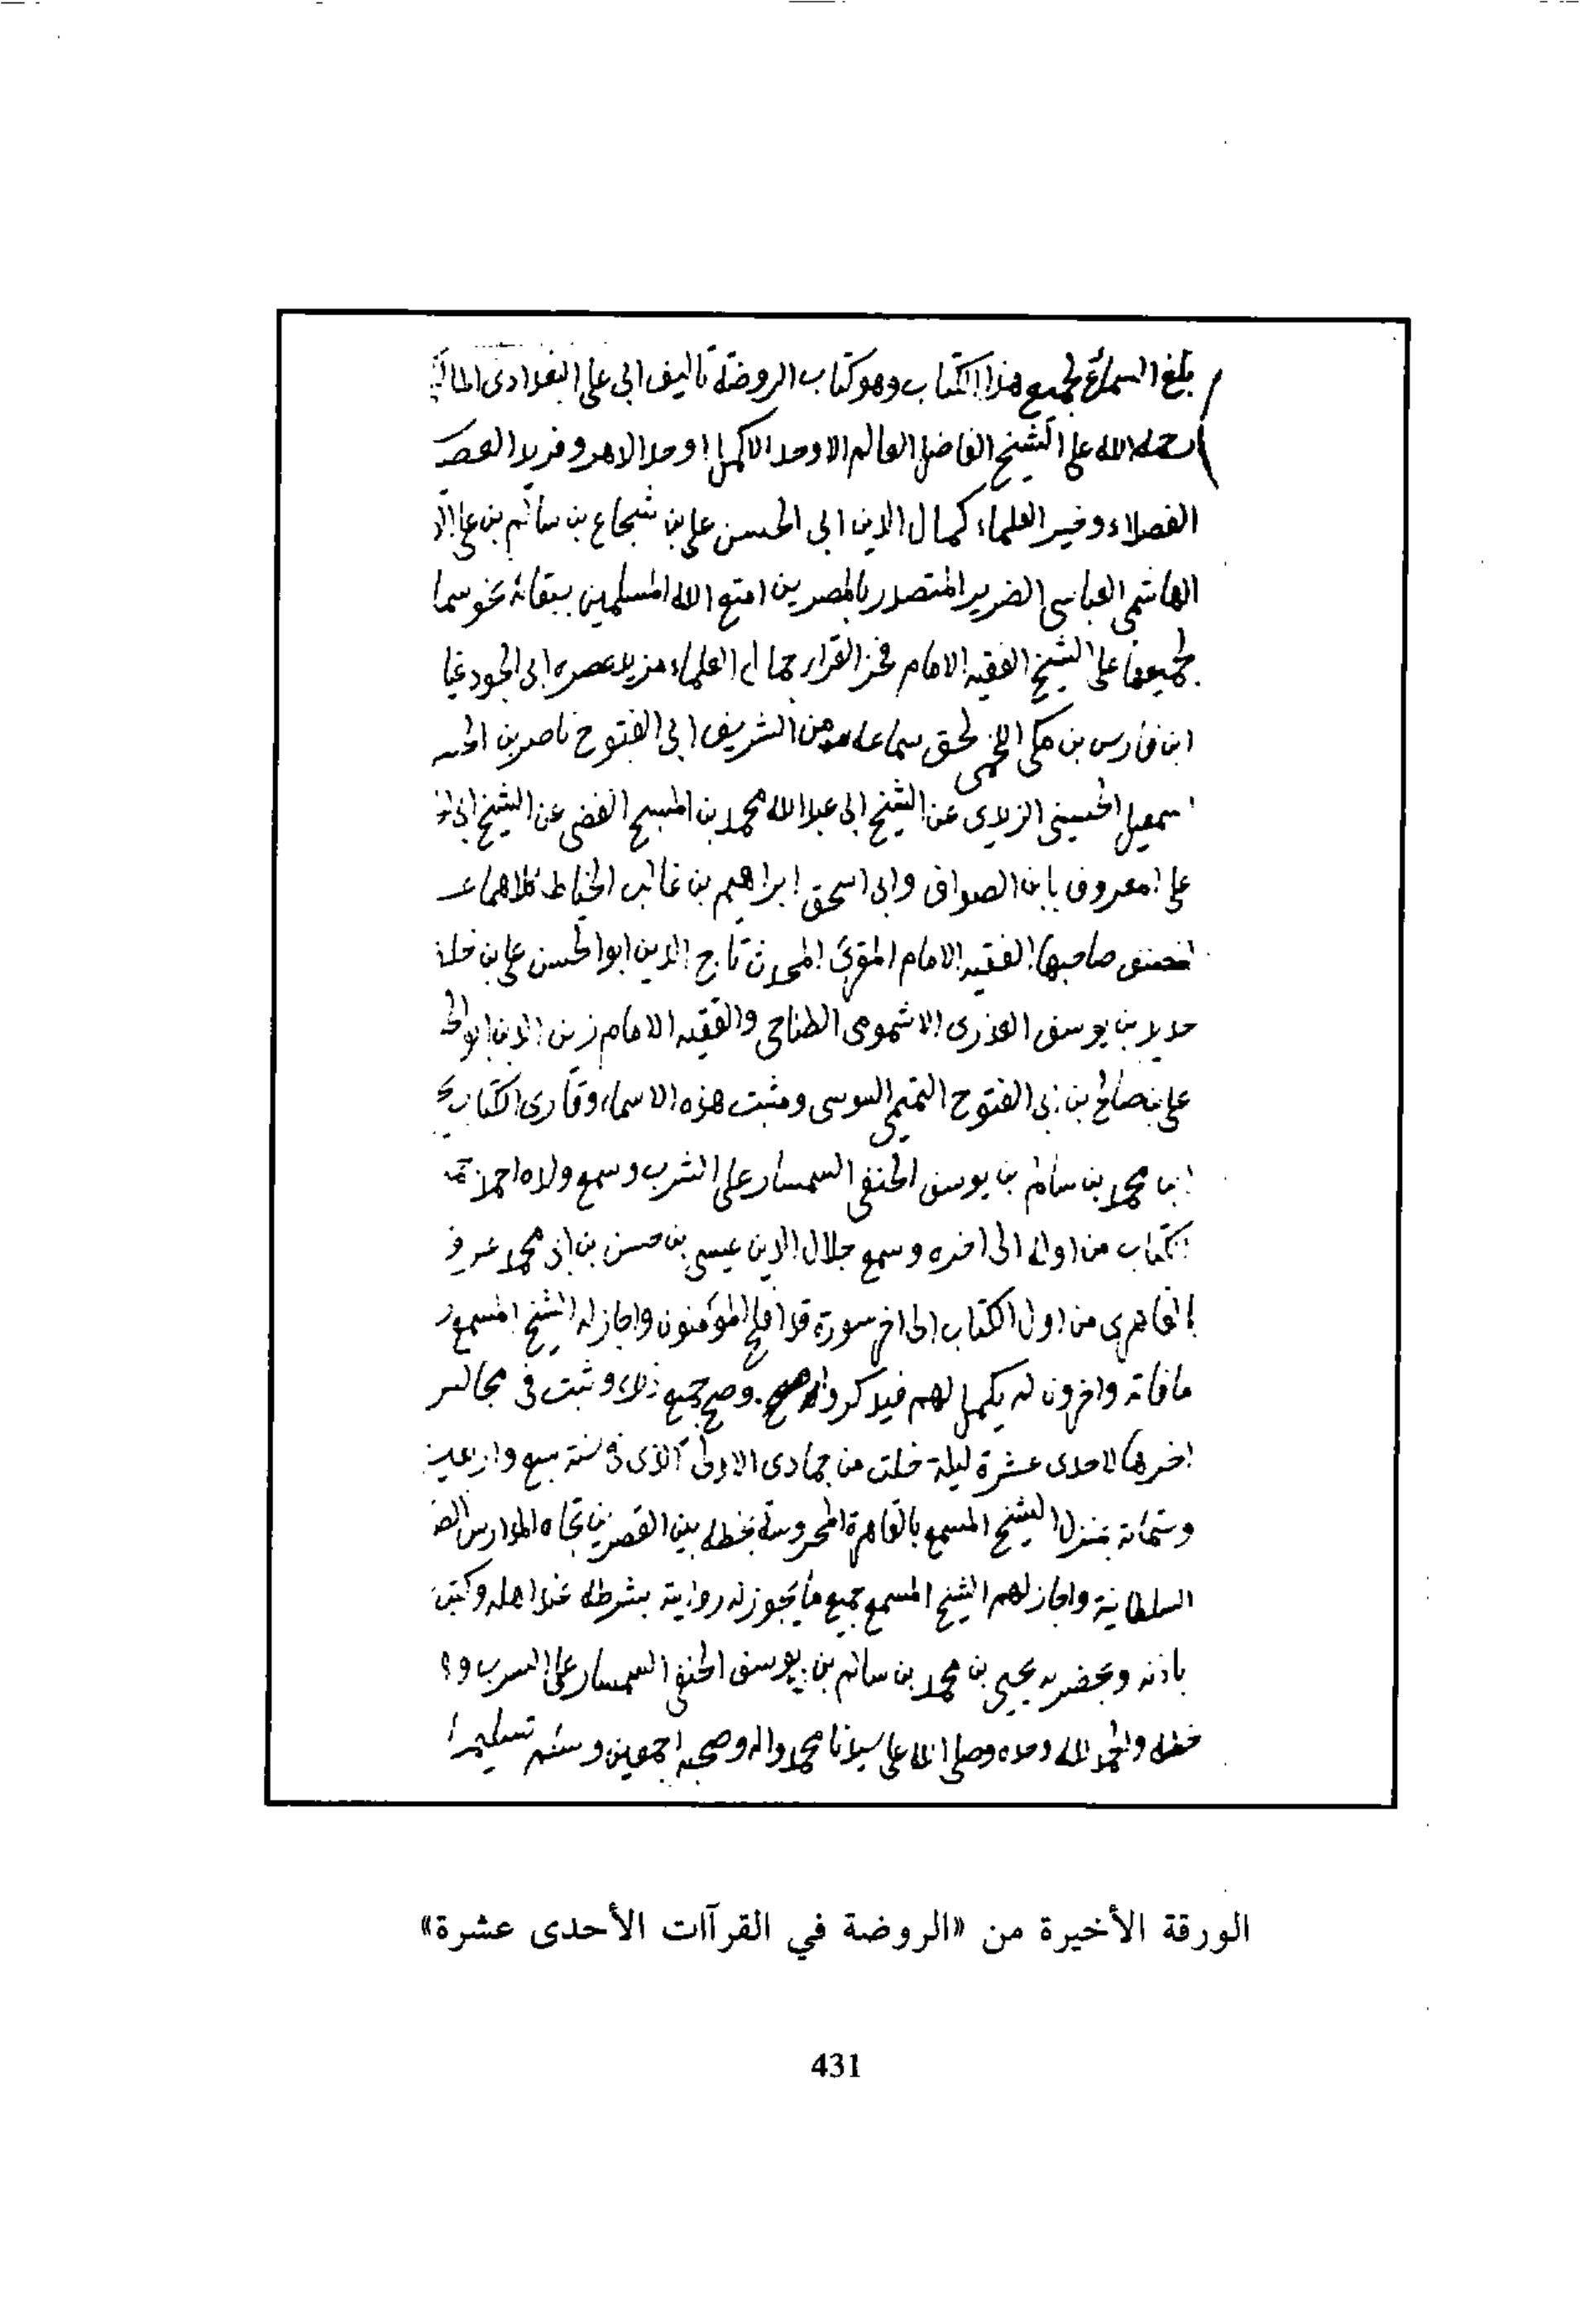 بلغ السماع لجميع هذا الكتاب وهو كتاب الروضة تاليف ابى على البغدادى المالكى
رحمه الله على الشيخ الفاضل العالم الاوحد الاكمل اوحد الدهر وفريد العصر
الفضلاء وخير العلماء كمال الدين ابى الحسن على بن شجاع بن سالم بن على
الهاشمى العباسى الضرير المتصدر بالمصريين امتع الله المسلمين ببقائه بحق سما
لجميعها على الشيخ الفقيه الامام فخر القراء جمال العلماء فريد عصره ابى الجود غيا
ابن فارس بن مكى اللخمى لحق سماعه من الشريف ابى الفتوح ناصر بن الحسـ
اسمعيل الحسينى الزيدى عن الشيخ ابى عبد الله محمد بن المسبح الفضى عن الشيخ
على المعروف بابن الصواف وابى اسحق ابراهيم بن غالب الخياط كلاهما عـ
صاحبها الفقيه الامام المقرئ المحدث تاج الدين ابو الحسن على بن
حديد بن يوسف العذرى الاشمومى الطناحى والفقيه الامام زين الدين ابو الحـ
على بن صالح بن ابى الفتوح التميمى السوسى ومثبت هذه الاسماء وقارى الكتاب
ابن محمد بن سالم بن يوسف الحنفى السمسار على الشرب وسمع ولاه احمد
الكتاب من اوله الى اخره وسمع جلال الدين عيسى بن حسن بن ابى محمد عرف
القاهرى من اول الكتاب الى اخر سورة قد افلح المؤمنون واجاز له الشيخ المسمع
ما فاته واخرون لم يكمل لهم فيذكروا وصح جميع ذلك وثبت فى مجالس
اخرها لاحدى عشرة ليلة خلت من جمادى الاولى الذى فى سنة سبع واربعين
وستمائة بمنزل الشيخ المسمع بالقاهرة المحروسة بخط بين القصرين تجاه المدارس
السلطانية واجاز لهم الشيخ المسمع جميع ما يجوز له روايته بشرطه عند اهله وكتب
باذنه وبحضرته يحيى بن محمد بن سالم بن يوسف الحنفى السمسار على الشرب
خطه والحمد لله وحده وصلى الله على سيدنا محمد واله وصحبه اجمعين وسلم تسليما
الورقة الأخيرة من «الروضة في القرآات الأحدى عشرة»
431